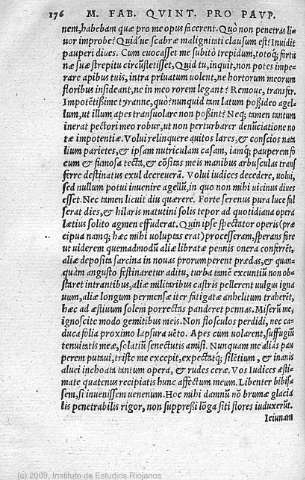 176 M. FAB. QVINT. PRO PAVP.
nem, habebam quæ pro meis apibus facerem. Quò non penetras li-
uor improbe? Quid ue scabræ malignitati clausum est? Inuidit
pauperi diues. Cum euocasset me subitò trepidum, totoq; fortu
næ suæ strepitu circũstetisset, Quid tu, inquit, non potes impe-
rare apibus tuis, intra priuatum uolent, ne hortorum meorum
floribus insideant, ne in meo rorem legant? Remoue, transfer.
Impotẽtissime tyranne, quò? nunquid tam latum possideo agel-
lum, ut illum apes transuolare non possint? Neq; tamen tantum
inerat pectori meo robur, ut non perturbarer denũciatione no-
tæ impotentiæ. Volui relinquere auitos lares, & conscios nata
lium parietes, & ipsam nutriculam casam, iamq; pauperem fo
cum & fumosa tecta, & cõsitas meis manibus arbusculas trans
ferre destinatus exul decreuerã. Volui iudices decedere, uolui,
sed nullum potui inuenire agellũ, in quo non mihi uicinus diues
esset. Nec tamen licuit diu quærere. Forte serenus pura luce ful
serat dies, & hilaris matutini solis tepor ad quotidiana opera
lætius solito agmen effuderat. Quin ipse spectator operis (præ
cipua namq; hæc mihi uoluptas erat) processeram, sperans fore
ut uiderem quemadmodũ aliæ libratæ pennis onera conferrẽt,
aliæ depositis sarcina in nouas prorumperent prædas, & quan
quàm angusto festinaretur aditu, turba tamẽ exeuntiũ non ob-
staret intrantibus, aliæ militaribus castris pellerent uulgus igna
uum, aliæ longum permensæ iter fatigatæ anhelitum traherẽt,
hæc ad æstiuum solem porrectas panderet pennas. Miserũ me,
ignoscite modo gemitibus meis. Non flosculos perdidi, nec ca-
duca folia proximo lapsura uẽto. Apes eum uolarent, suffugiũ
tenuitatis meæ, solatiũ senectutis amisi. Nunquam me aliàs pau
perem putaui, triste me excepit, expectatiq; silẽtium, & inanis
aluei inchoata tantum opera, & rudes ceræ. Vos iudices æsti-
mate quatenus recipiatis hunc affectum meum. Libenter bibis-
sem, si inuenissem uenenum. Hoc mihi damnũ nõ brumæ glacia
lis penetrabilis rigor, non suppressi lõga siti flores iduxerũt.
Ieiunam
(c) 2009, Instituto de Estudios Riojanos